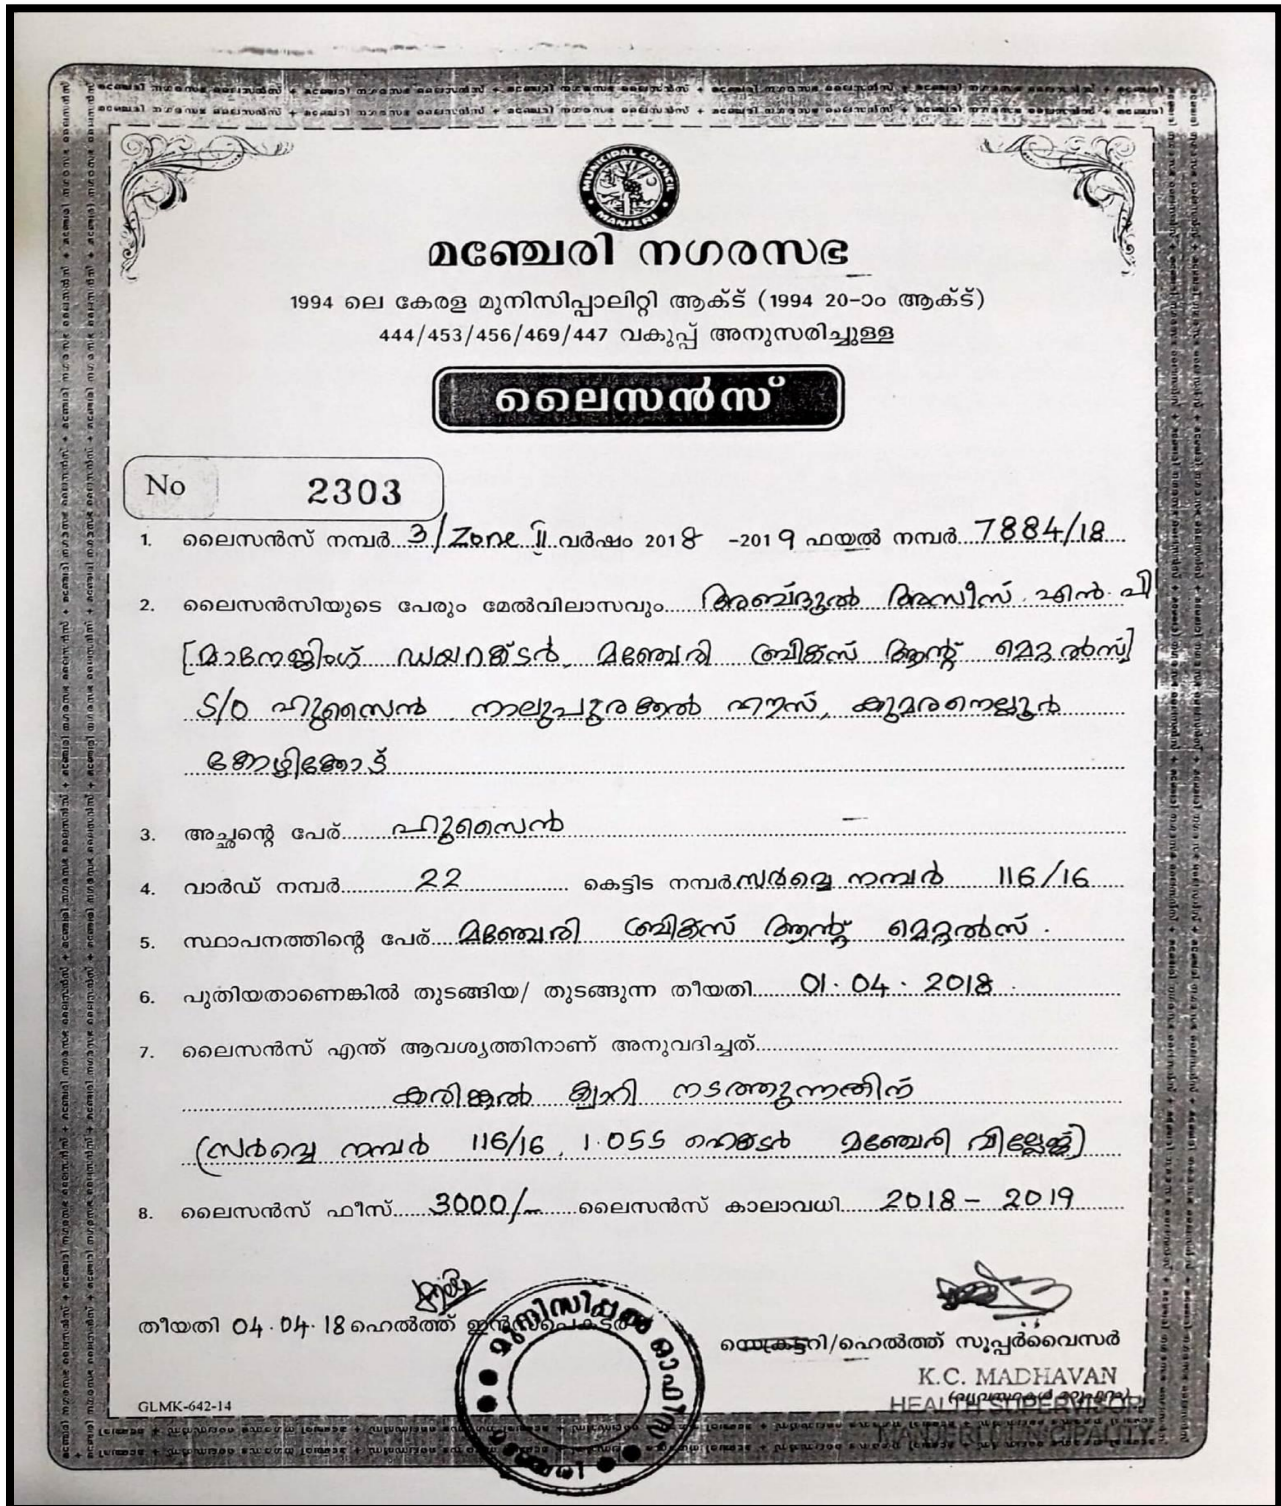 MUNICIPAL COUNCIL
MANJERI
മഞ്ചേരി നഗരസഭ
1994 ലെ കേരള മുനിസിപ്പാലിറ്റി ആക്ട് (1994 20-ാം ആക്ട്)
444/453/456/469/447 വകുപ്പ് അനുസരിച്ചുള്ള
ലൈസൻസ്
No 2303
1. ലൈസൻസ് നമ്പർ 3/Zone II വർഷം 2018 -2019 ഫയൽ നമ്പർ 7884/18
2. ലൈസൻസിയുടെ പേരും മേൽവിലാസവും അബ്ദുൽ അസീസ് . എൻ. പി
[മാനേജിംഗ് ഡയറക്ടർ, മഞ്ചേരി ബ്രിക്സ് ആന്റ് മെറ്റൽസ്]
S/O ഹുസൈൻ നാലുപുരക്കൽ ഹൗസ്, കുമരനെല്ലൂർ
കോഴിക്കോട്
3. അച്ഛന്റെ പേര് ഹുസൈൻ
4. വാർഡ് നമ്പർ 22 കെട്ടിട നമ്പർ സർവ്വെ നമ്പർ 116/16
5. സ്ഥാപനത്തിന്റെ പേര് മഞ്ചേരി ബ്രിക്സ് ആന്റ് മെറ്റൽസ് .
6. പുതിയതാണെങ്കിൽ തുടങ്ങിയ/ തുടങ്ങുന്ന തീയതി 01. 04. 2018 .
7. ലൈസൻസ് എന്ത് ആവശ്യത്തിനാണ് അനുവദിച്ചത്
കരിങ്കൽ ക്വാറി നടത്തുന്നതിന്
(സർവ്വെ നമ്പർ 116/16, 1.055 ഹെക്ടർ മഞ്ചേരി വില്ലേജ്)
8. ലൈസൻസ് ഫീസ് 3000/- ലൈസൻസ് കാലാവധി 2018 - 2019
തീയതി 04.04.18 ഹെൽത്ത് ഇൻസ്പെക്ടർ
മുനിസിപ്പൽ ഓഫീസ്
മഞ്ചേരി
സെക്രട്ടറി/ഹെൽത്ത് സൂപ്പർവൈസർ
K.C. MADHAVAN
HEALTH SUPERVISOR
MANJERI MUNICIPALITY
GLMK-642-14